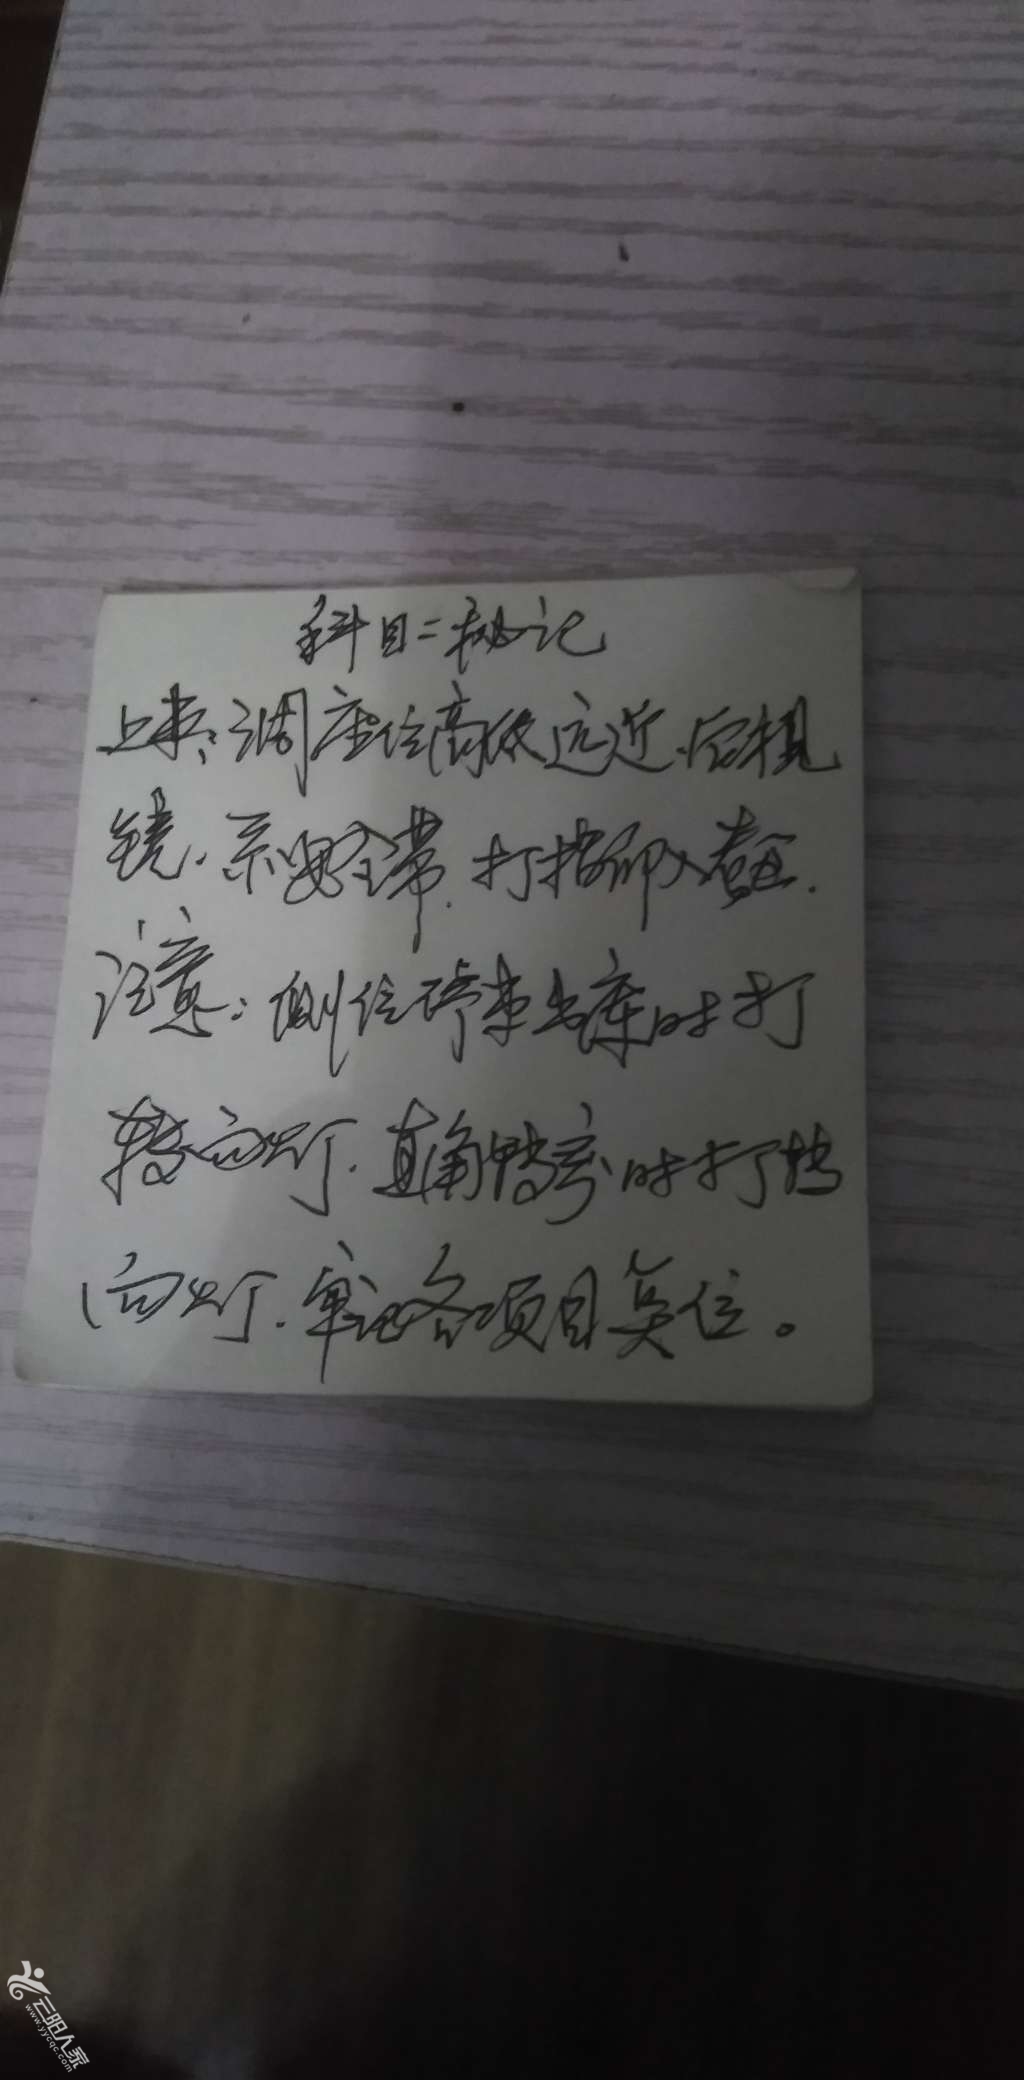 科目二秘记
上车:调座位高低远近、后视
镜、系安全带、打指印入考区.
注意:侧位停车出库时打
转向灯、直角转弯时打转
向灯、牢记各项目点位。
云阳人家
www.yycqc.com